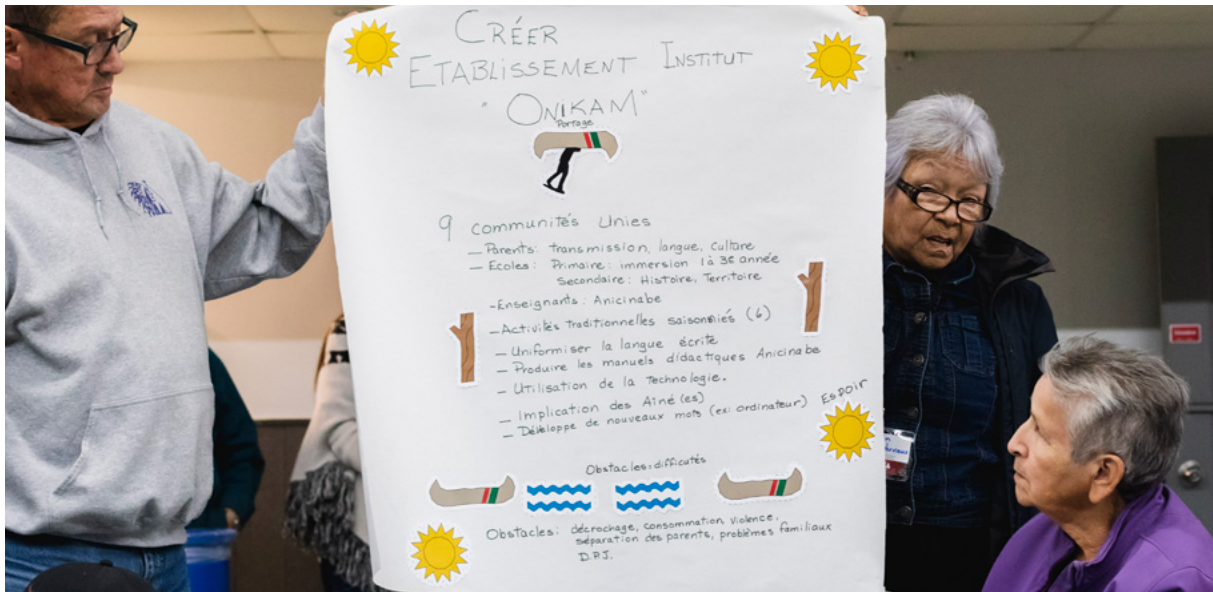 CRÉER
ETABLISSEMENT INSTITUT
"ONIKAM"
Portage
9 communités Unies
- Parents: transmission, langue, culture
- Ecoles: Primaire: immersion 1 à 3e année
Secondaire: Histoire, Territoire
- Enseignants: Anicinabe
- Activités traditionnelles saisonniés (6)
- Uniformiser la langue écrite
- Produire les manuels didactiques Anicinabe
- Utilisation de la Technologie.
- Implication des Ainé(es)
- Développe de nouveaux mots (ex: ordinateur)
Espoir
Obstacles: difficutés
Obstacles: décrochage, consommation, violence,
séparation des parents, problèmes familiaux
D.P.J.